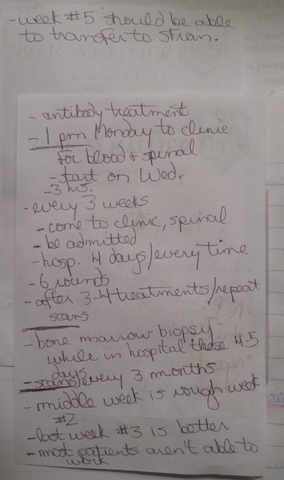 -week #5 should be able
to transfer to Stran.
- antibody treatment
- 1 pm Monday to clinic
for blood + spinal
-start on Wed.
-3 hrs.
-every 3 weeks
-come to clinic, spinal
-be admitted
-hosp. 4 days/every time
-6 rounds
-after 3-4 treatments/repeat
scans
-bone marrow biopsy
while in hospital these 4-5
days
-scans every 3 months
-middle week is rough week
#2
-last week #3 is better
-most patients aren't able to
work